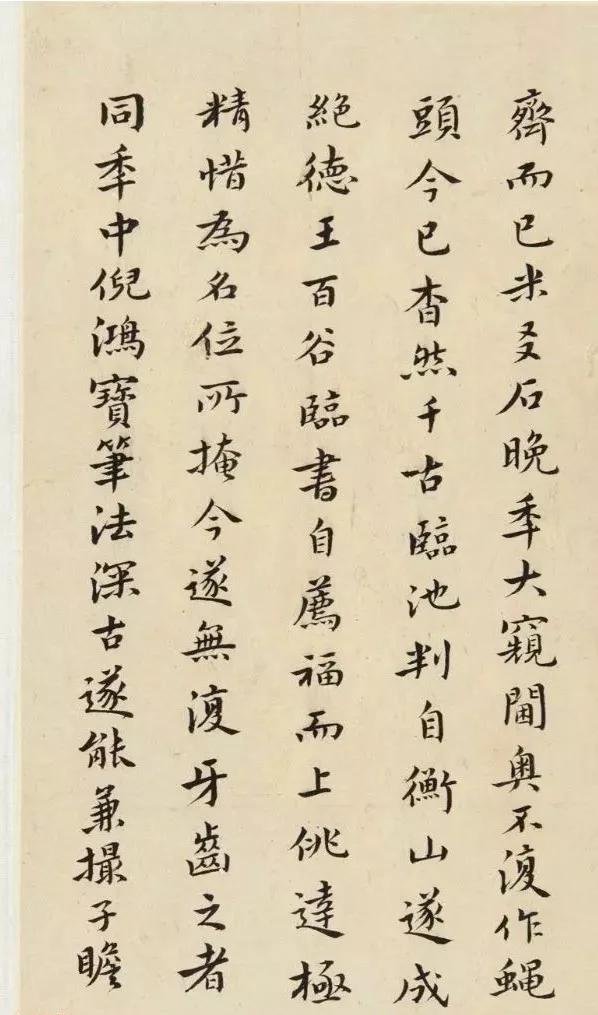 齊而已米友石晚年大窺閫奥不復作蝇
頭今已杳然千古臨池判自衡山遂成
絕德王百谷臨書自薦福而上佻達極
精惜為名位所掩今遂無復牙齒之者
同年中倪鴻寶筆法深古遂能兼撮子瞻